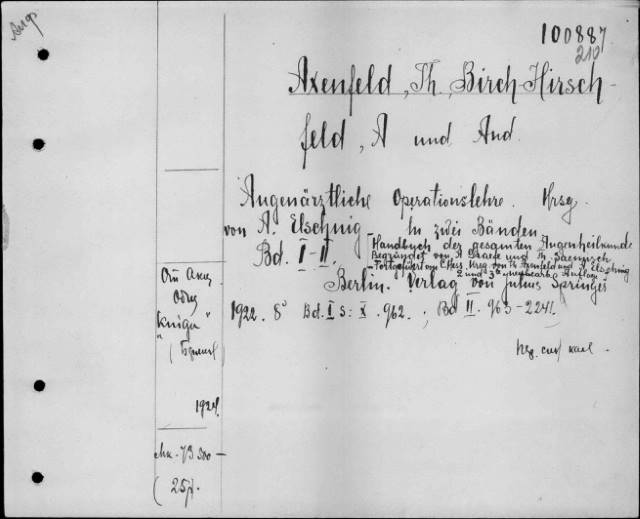 100887
210
Axenfeld, Th., Birch-Hirsch-
feld, A und And.
Augenärztliche Operationslehre. Hrsg.
von A. Elschnig - In zwei Bänden
Bd. I-II.
- Handbuch der gesamten Augenheilkunde
Begründet von A Graefe und Th. Saemisch
- Fortgeführt von C Hess. Hrsg. von Th. Axenfeld und A. Elschnig
2 und 3te Auflage
Berlin. Verlag von Julius Springer
1922. 8° Bd. I S: X. 962. ; Bd II. 963-2241.
От Акц.
Общ
"Книга"
(Берлин)
1924.
Мк. 73500 -
(25р).